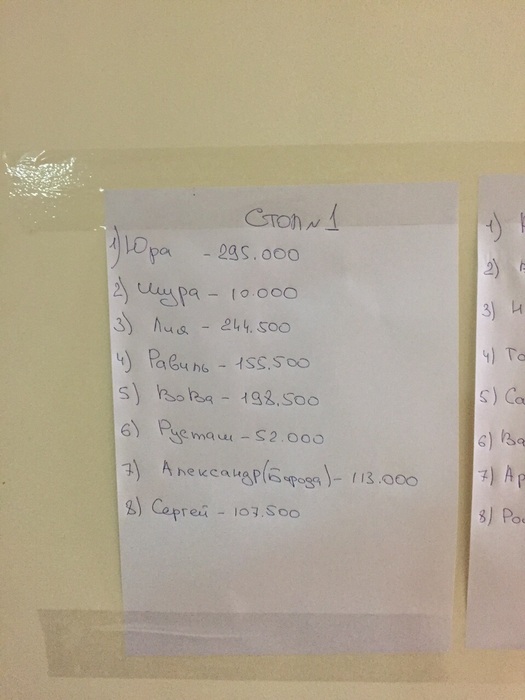 СТОЛ N 1
1) Юра - 295.000
2) Шура - 10.000
3) Лия - 244.500
4) Равиль - 155.500
5) ВоВа - 198.500
6) Русташ - 52.000
7) Александр (Борода) - 113.000
8) Сергей - 107.500
1)
2)
3)
4) То
5) Са
6) Ва
7) Ар
8) Рос